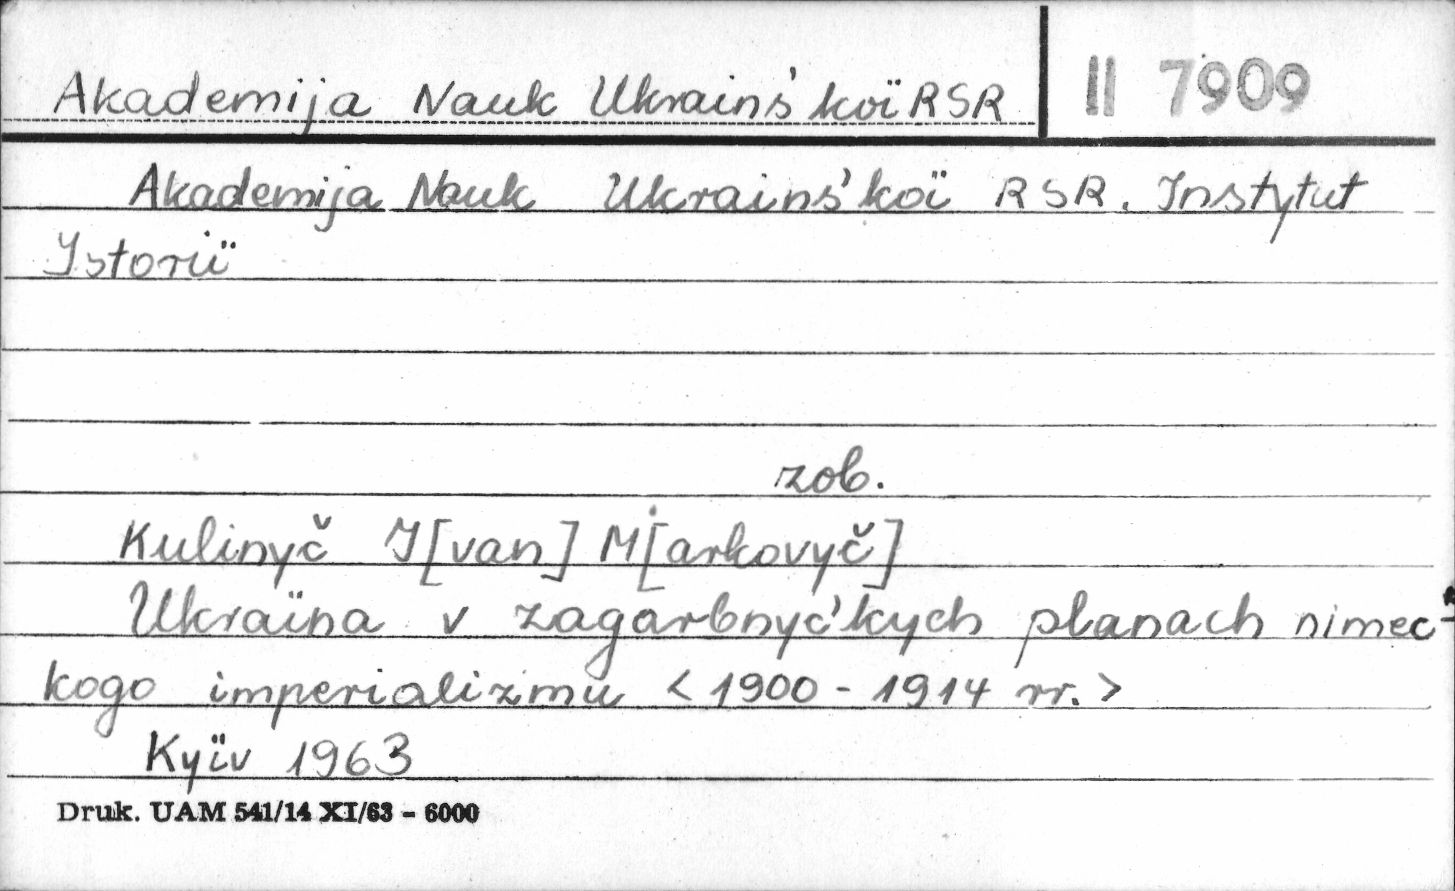 Akademija Nauk Ukrainśkoï RSR
II 7909
Akademija Nauk Ukrainśkoï RSR. Instytut
Istoriï
zob.
Kulinyč I[van] M[arkovyč]
Ukraïna v zagarbnyćkych planach nimeć-
kogo imperializmu <1900 - 1914 rr.>
Kyïv 1963
Druk. UAM 541/14 XI/63 - 6000